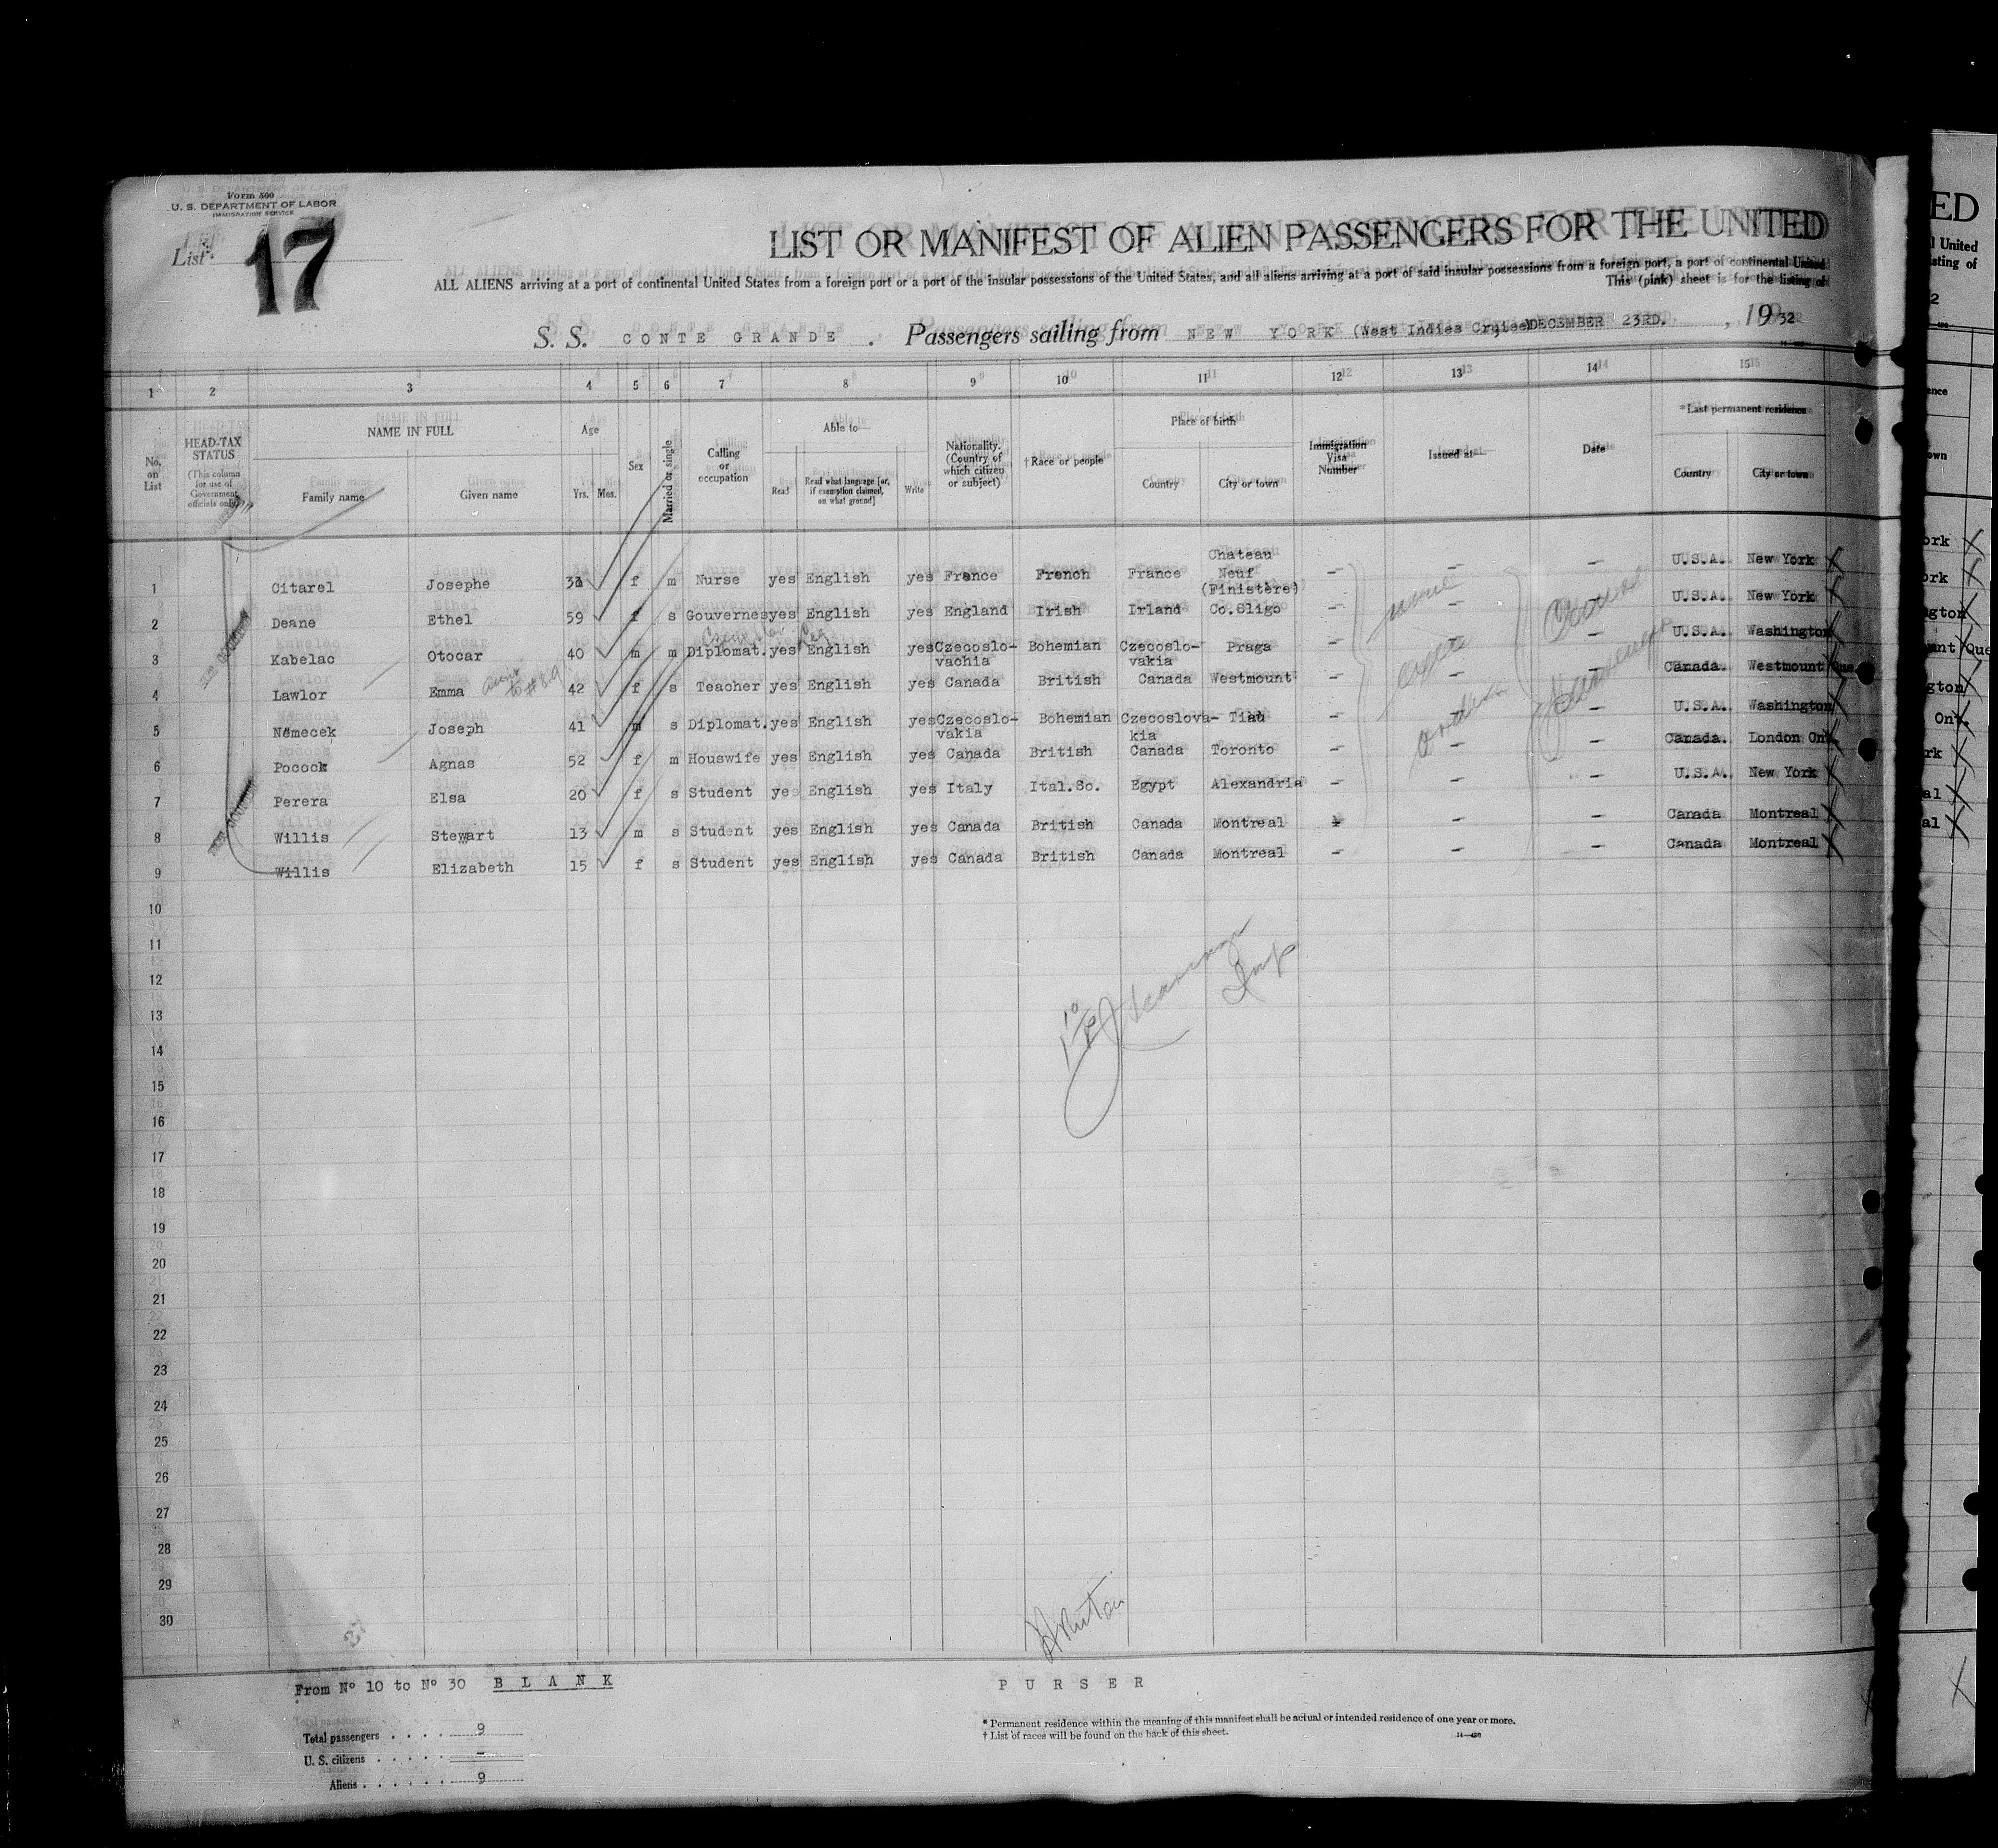 Form 500
U. S. DEPARTMENT OF LABOR
IMMIGRATION SERVICE
List 17
LIST OR MANIFEST OF ALIEN PASSENGERS FOR THE UNITED
ALL ALIENS arriving at a port of continental United States from a foreign port or a part of the insular possessions of the United States, and all aliens arriving at a port of said insular possessions from a foreign port, a part of continental United
This (pink) sheet is for the listing of
S. S. CONTE GRANDE . Passengers sailing from NEW YORK (West Indies Cruise) DECEMBER 23RD. , 1932
1 2 3 4 5 6 7 8 9 10 11 12 13 14 15
No. on List
HEAD-TAX STATUS
(This column for use of Government officials only)
NAME IN FULL
Family name Given name
Age
Yrs. Mos.
Sex
Married or single
Calling or occupation
Able to—
Read Read what language [or, if exemption claimed, on what ground] Write
Nationality. (Country of which citizen or subject)
† Race or people
Place of birth
Country City or town
Immigration Visa Number
Issued at—
Date
*Last permanent residence
Country City or town
1 Citarel Josephe f m Nurse yes English yes France French France Chateau Neuf (Finistère) — — — U.S.A. New York
2 Deane Ethel 59 f s Gouvernes yes English yes England Irish Irland Co.Sligo — — — U.S.A. New York
3 Kabelac Otocar 40 m m Diplomat. yes English yes Czecoslo-vachia Bohemian Czecoslo-vakia Praga — — — U.S.A. Washington
4 Lawlor Emma 42 f s Teacher yes English yes Canada British Canada Westmount — — — Canada. Westmount Que.
Aunt to # 8-9
5 Nemecek Joseph 41 m s Diplomat. yes English yes Czecoslo-vakia Bohemian Czecoslova-kia — — — U.S.A. Washington
6 Pocock Agnas 52 f m Houswife yes English yes Canada British Canada Toronto — — — Canada. London Ont.
7 Perera Elsa 20 f s Student yes English yes Italy Ital.So. Egypt Alexandria — — — U.S.A. New York
8 Willis Stewart 13 m s Student yes English yes Canada British Canada Montreal — — Canada Montreal
9 Willis Elizabeth 15 f s Student yes English yes Canada British Canada Montreal — — — Canada Montreal
10
11
12
13
14
15
16
17
18
19
20
21
22
23
24
25
26
27
28
29
30
From Nº 10 to Nº 30 BLANK
PURSER
Total passengers . . . . 9
U. S. citizens . . . . . –
Aliens . . . . . . 9
* Permanent residence within the meaning of this manifest shall be actual or intended residence of one year or more.
† List of races will be found on the back of this sheet.